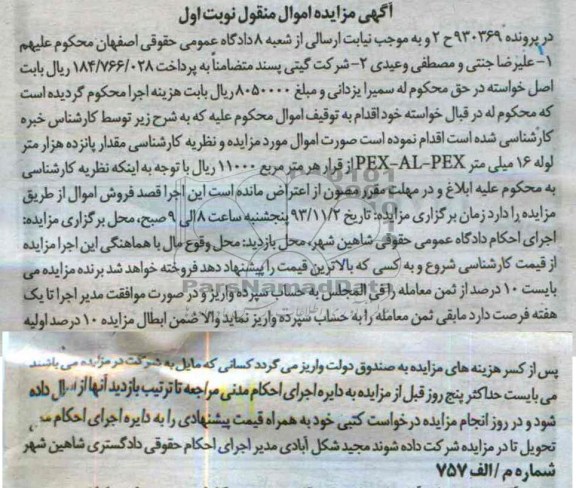 آگهی مزایده اموال منقول نوبت اول
در پرونده ۹۳۰۳۶۹ ح ۲ و به موجب نیابت ارسالی از شعبه ۸ دادگاه عمومی حقوقی اصفهان محکوم علیهم
۱- علیرضا جنتی و مصطفی وعیدی ۲- شرکت گیتی پسند متضامناً به پرداخت ۱۸۴/۷۶۶/۰۲۸ ریال بابت
اصل خواسته در حق محکوم له سمیرا یزدانی و مبلغ ۸۰۵۰۰۰۰ ریال بابت هزینه اجرا محکوم گردیده است
که محکوم له در قبال خواسته خود اقدام به توقیف اموال محکوم علیه که به شرح زیر توسط کارشناس خبره
کارشناسی شده است اقدام نموده است صورت اموال مورد مزایده و نظریه کارشناسی مقدار پانزده هزار متر
لوله ۱۶ میلی متر PEX-AL-PEX از قرار هر متر مربع ۱۱۰۰۰ ریال با توجه به اینکه نظریه کارشناسی
به محکوم علیه ابلاغ و در مهلت مقرر مصون از اعتراض مانده است این اجرا قصد فروش اموال از طریق
مزایده را دارد زمان برگزاری مزایده: تاریخ ۹۳/۱۱/۲ پنجشنبه ساعت ۸ الی ۹ صبح، محل برگزاری مزایده:
اجرای احکام دادگاه عمومی حقوقی شاهین شهر، محل بازدید: محل وقوع مال با هماهنگی این اجرا مزایده
از قیمت کارشناسی شروع و به کسی که بالاترین قیمت را پیشنهاد دهد فروخته خواهد شد برنده مزایده می
بایست ۱۰ درصد از ثمن معامله را فی المجلس به حساب سپرده واریز و در صورت موافقت مدیر اجرا تا یک
هفته فرصت دارد مابقی ثمن معامله را به حساب سپرده واریز نماید والا ضمن ابطال مزایده ۱۰ درصد اولیه
پس از کسر هزینه های مزایده به صندوق دولت واریز می گردد کسانی که مایل به شرکت در مزایده می باشند
می بایست حداکثر پنج روز قبل از مزایده به دایره اجرای احکام مدنی مراجعه تا ترتیب بازدید آنها از اموال داده
شود و در روز انجام مزایده درخواست کتبی خود به همراه قیمت پیشنهادی را به دایره اجرای احکام
تحویل تا در مزایده شرکت داده شوند مجید شکل آبادی مدیر اجرای احکام حقوقی دادگستری شاهین شهر
شماره م/الف ۷۵۷